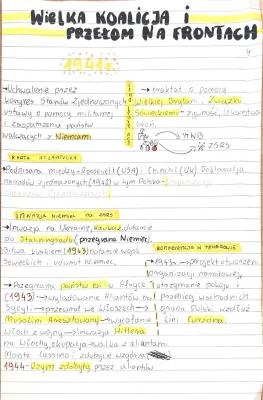 WIELKA KOALICJA i
PRZEŁOM NA FRONTACH
1941r.
→Uchwalenie przez
kongres Stanów Zjednoczonych
ustawy o pomocy militarnej
i zaopatrzeniu państw
walczących z Niemcami
→traktat o pomocy
Wielkiej Brytani Związku
Sowieckiemu - żywność, lekarstwa
broń.
→WB
→ZSRS
KARTA ATLANTYCKA
→Podpisana między-Roosevelt (USA) i Churchil (UK) Deklaracja
narodów zjednoczonych (1942) w tym Polska
INWAZJA NIEMIEC na ZSRS
→Inwazja na Ukrainę, Kaukaz, dotarcie
do Stalingradu (przegrana Niemiec)
Bitwa kurskiem (1943) natarcie wojsk
Sowieckich i odwrót Niemiec.
KONFERENCJA W TEHERANIE
→1943r.→projekt utworzenia
organizacji narodowej,
utrzymanie pokoju i
przebieg wschodnich
granic Polski wzdłuż
Lini Curzona.
→Przegrana państw osi w Afryce
(1943)→wylądowanie Aliantów na
Sycyli→przewrót we Włoszech→
Musolini Aresztowany→wycofanie
Włoch z wojny→Inwazja Hitlera
na Włochy, okupacja→walka z aliantami
Monte Cassino: zdobycie wzgórza
1944-Rzym zdobyty przez aliantów